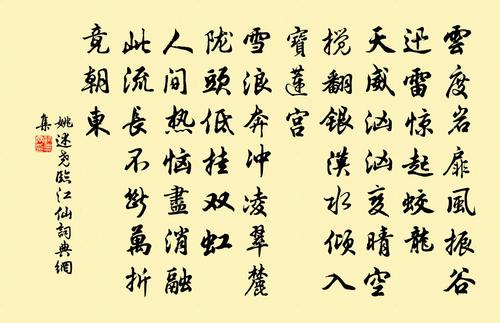 雲度岩扉風振谷
迅雷惊起蛟龍
天威汹汹变晴空
搅翻銀漢水倾入
寶蓮宫
雪浪奔冲凌翠麓
陇頭低挂双虹
人间热恼盡消融
此流長不断萬折
竟朝東
姚述尧臨江仙詞典網
集